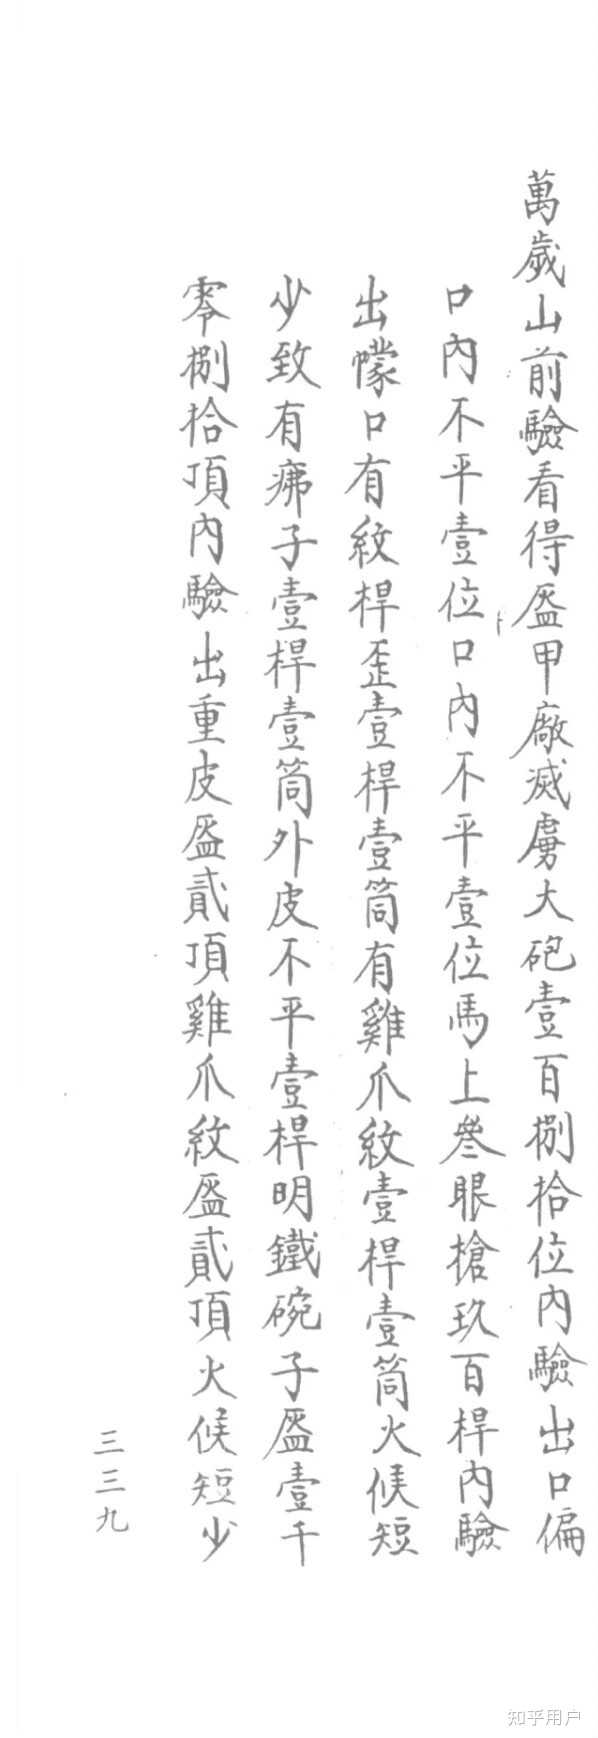 萬歲山前驗看得盔甲廠滅虜大砲壹百捌拾位內驗出口偏
口內不平壹位口內不平壹位馬上叄眼槍玖百桿內驗
出幪口有紋桿歪壹桿壹筒有雞爪紋壹桿壹筒火候短
少致有疿子壹桿壹筒外皮不平壹桿明鐵碗子盔壹千
零捌拾頂內驗出重皮盔貳頂雞爪紋盔貳頂火候短少
三三九
知乎用户